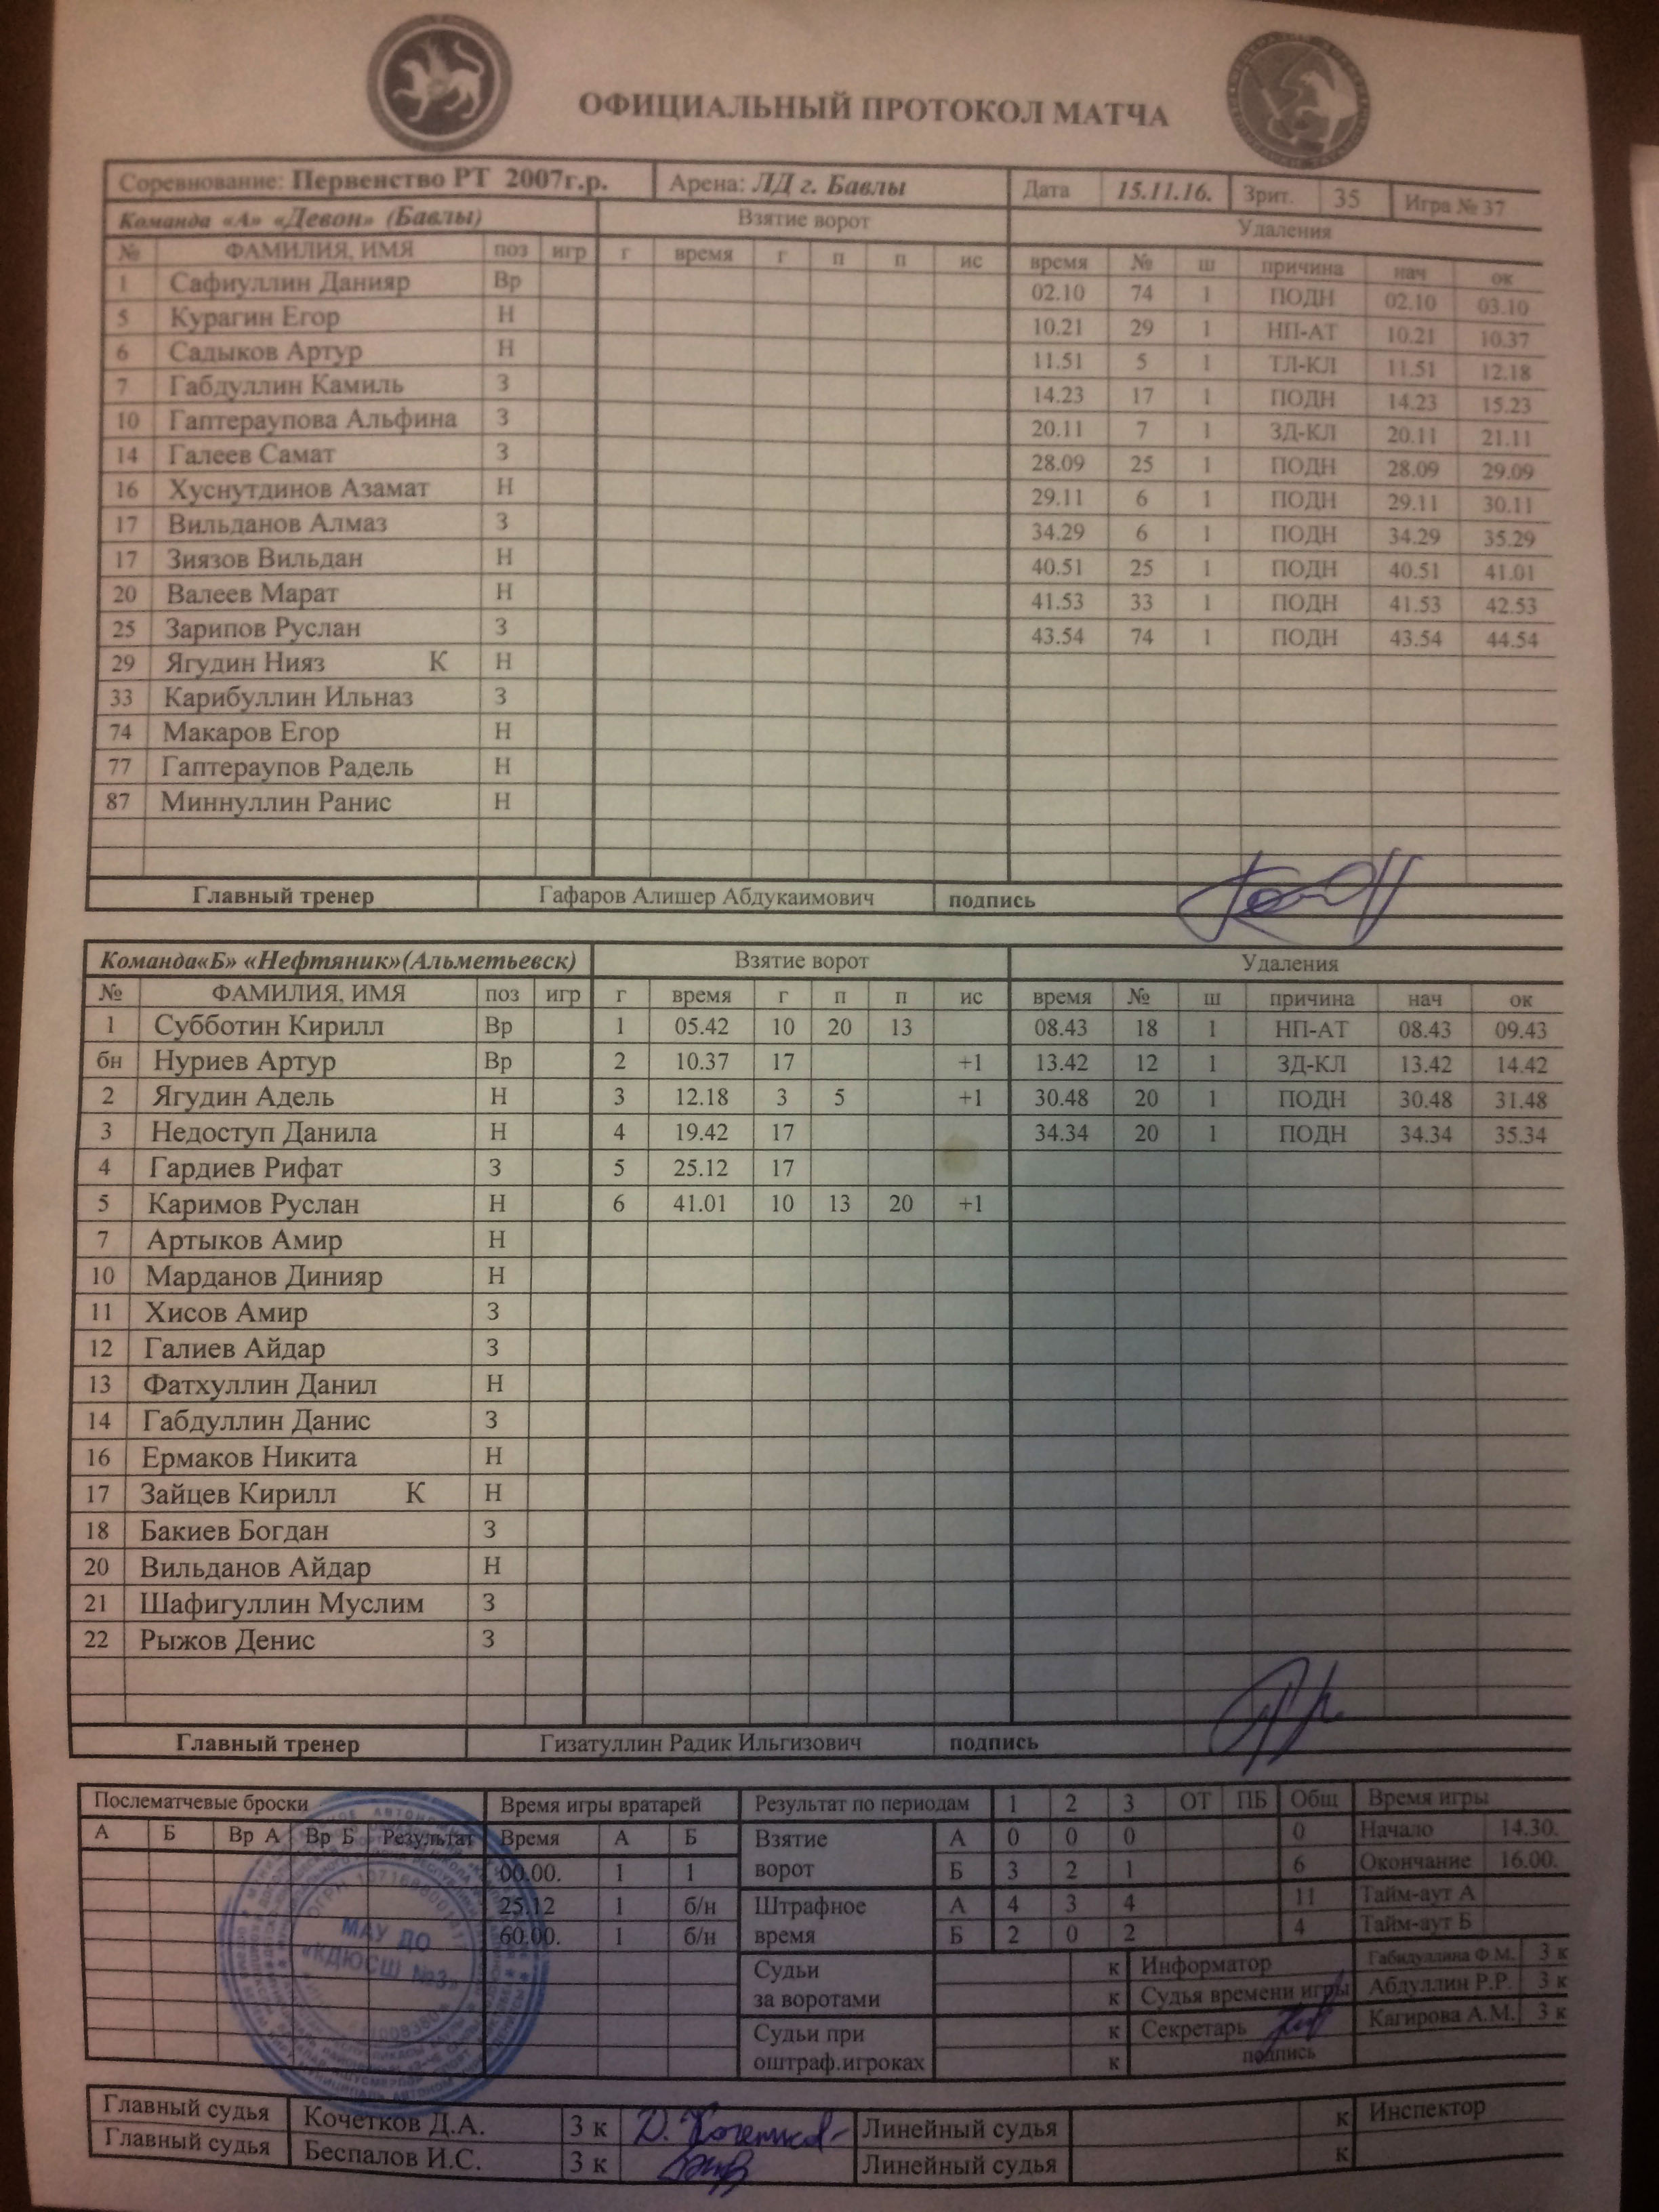 ОФИЦИАЛЬНЫЙ ПРОТОКОЛ МАТЧА
Соревнование: Первенство РТ 2007г.р. Арена: ЛД г. Бавлы Дата 15.11.16. Зрит. 35 Игра № 37
Команда «А» «Девон» (Бавлы) Взятие ворот Удаления
№ ФАМИЛИЯ, ИМЯ поз игр г время г п п ис время № ш причина нач ок
1 Сафиуллин Данияр Вр 02.10 74 1 ПОДН 02.10 03.10
5 Курагин Егор Н 10.21 29 1 НП-АТ 10.21 10.37
6 Садыков Артур Н 11.51 5 1 ТЛ-КЛ 11.51 12.18
7 Габдуллин Камиль З 14.23 17 1 ПОДН 14.23 15.23
10 Гаптераупова Альфина З 20.11 7 1 ЗД-КЛ 20.11 21.11
14 Галеев Самат З 28.09 25 1 ПОДН 28.09 29.09
16 Хуснутдинов Азамат Н 29.11 6 1 ПОДН 29.11 30.11
17 Вильданов Алмаз З 34.29 6 1 ПОДН 34.29 35.29
17 Зиязов Вильдан Н 40.51 25 1 ПОДН 40.51 41.01
20 Валеев Марат Н 41.53 33 1 ПОДН 41.53 42.53
25 Зарипов Руслан З 43.54 74 1 ПОДН 43.54 44.54
29 Ягудин Нияз К Н
33 Карибуллин Ильназ З
74 Макаров Егор Н
77 Гаптераупов Радель Н
87 Миннуллин Ранис Н
Главный тренер Гафаров Алишер Абдукаимович подпись
Команда«Б» «Нефтяник»(Альметьевск) Взятие ворот Удаления
№ ФАМИЛИЯ, ИМЯ поз игр г время г п п ис время № ш причина нач ок
1 Субботин Кирилл Вр 1 05.42 10 20 13 08.43 18 1 НП-АТ 08.43 09.43
бн Нуриев Артур Вр 2 10.37 17 +1 13.42 12 1 ЗД-КЛ 13.42 14.42
2 Ягудин Адель Н 3 12.18 3 5 +1 30.48 20 1 ПОДН 30.48 31.48
3 Недоступ Данила Н 4 19.42 17 34.34 20 1 ПОДН 34.34 35.34
4 Гардиев Рифат З 5 25.12 17
5 Каримов Руслан Н 6 41.01 10 13 20 +1
7 Артыков Амир Н
10 Марданов Динияр Н
11 Хисов Амир З
12 Галиев Айдар З
13 Фатхуллин Данил Н
14 Габдуллин Данис З
16 Ермаков Никита Н
17 Зайцев Кирилл К Н
18 Бакиев Богдан З
20 Вильданов Айдар Н
21 Шафигуллин Муслим З
22 Рыжов Денис З
Главный тренер Гизатуллин Радик Ильгизович подпись
Послематчевые броски Время игры вратарей Результат по периодам 1 2 3 ОТ ПБ Общ Время игры
А Б Вр А Вр Б Результат Время А Б Взятие А 0 0 0 0 Начало 14.30.
00.00. 1 1 ворот Б 3 2 1 6 Окончание 16.00.
25.12 1 б/н Штрафное А 4 3 4 11 Тайм-аут А
60.00. 1 б/н время Б 2 0 2 4 Тайм-аут Б
Судьи к Информатор Габидуллина Ф.М. 3 к
за воротами к Судья времени игры Абдуллин Р.Р. 3 к
Судьи при к Секретарь Кагирова А.М. 3 к
оштраф.игроках к подпись
МАУ ДО
«КДЮСШ №3»
Главный судья Кочетков Д.А. 3 к Д. Кочетков Линейный судья к Инспектор
Главный судья Беспалов И.С. 3 к Линейный судья к